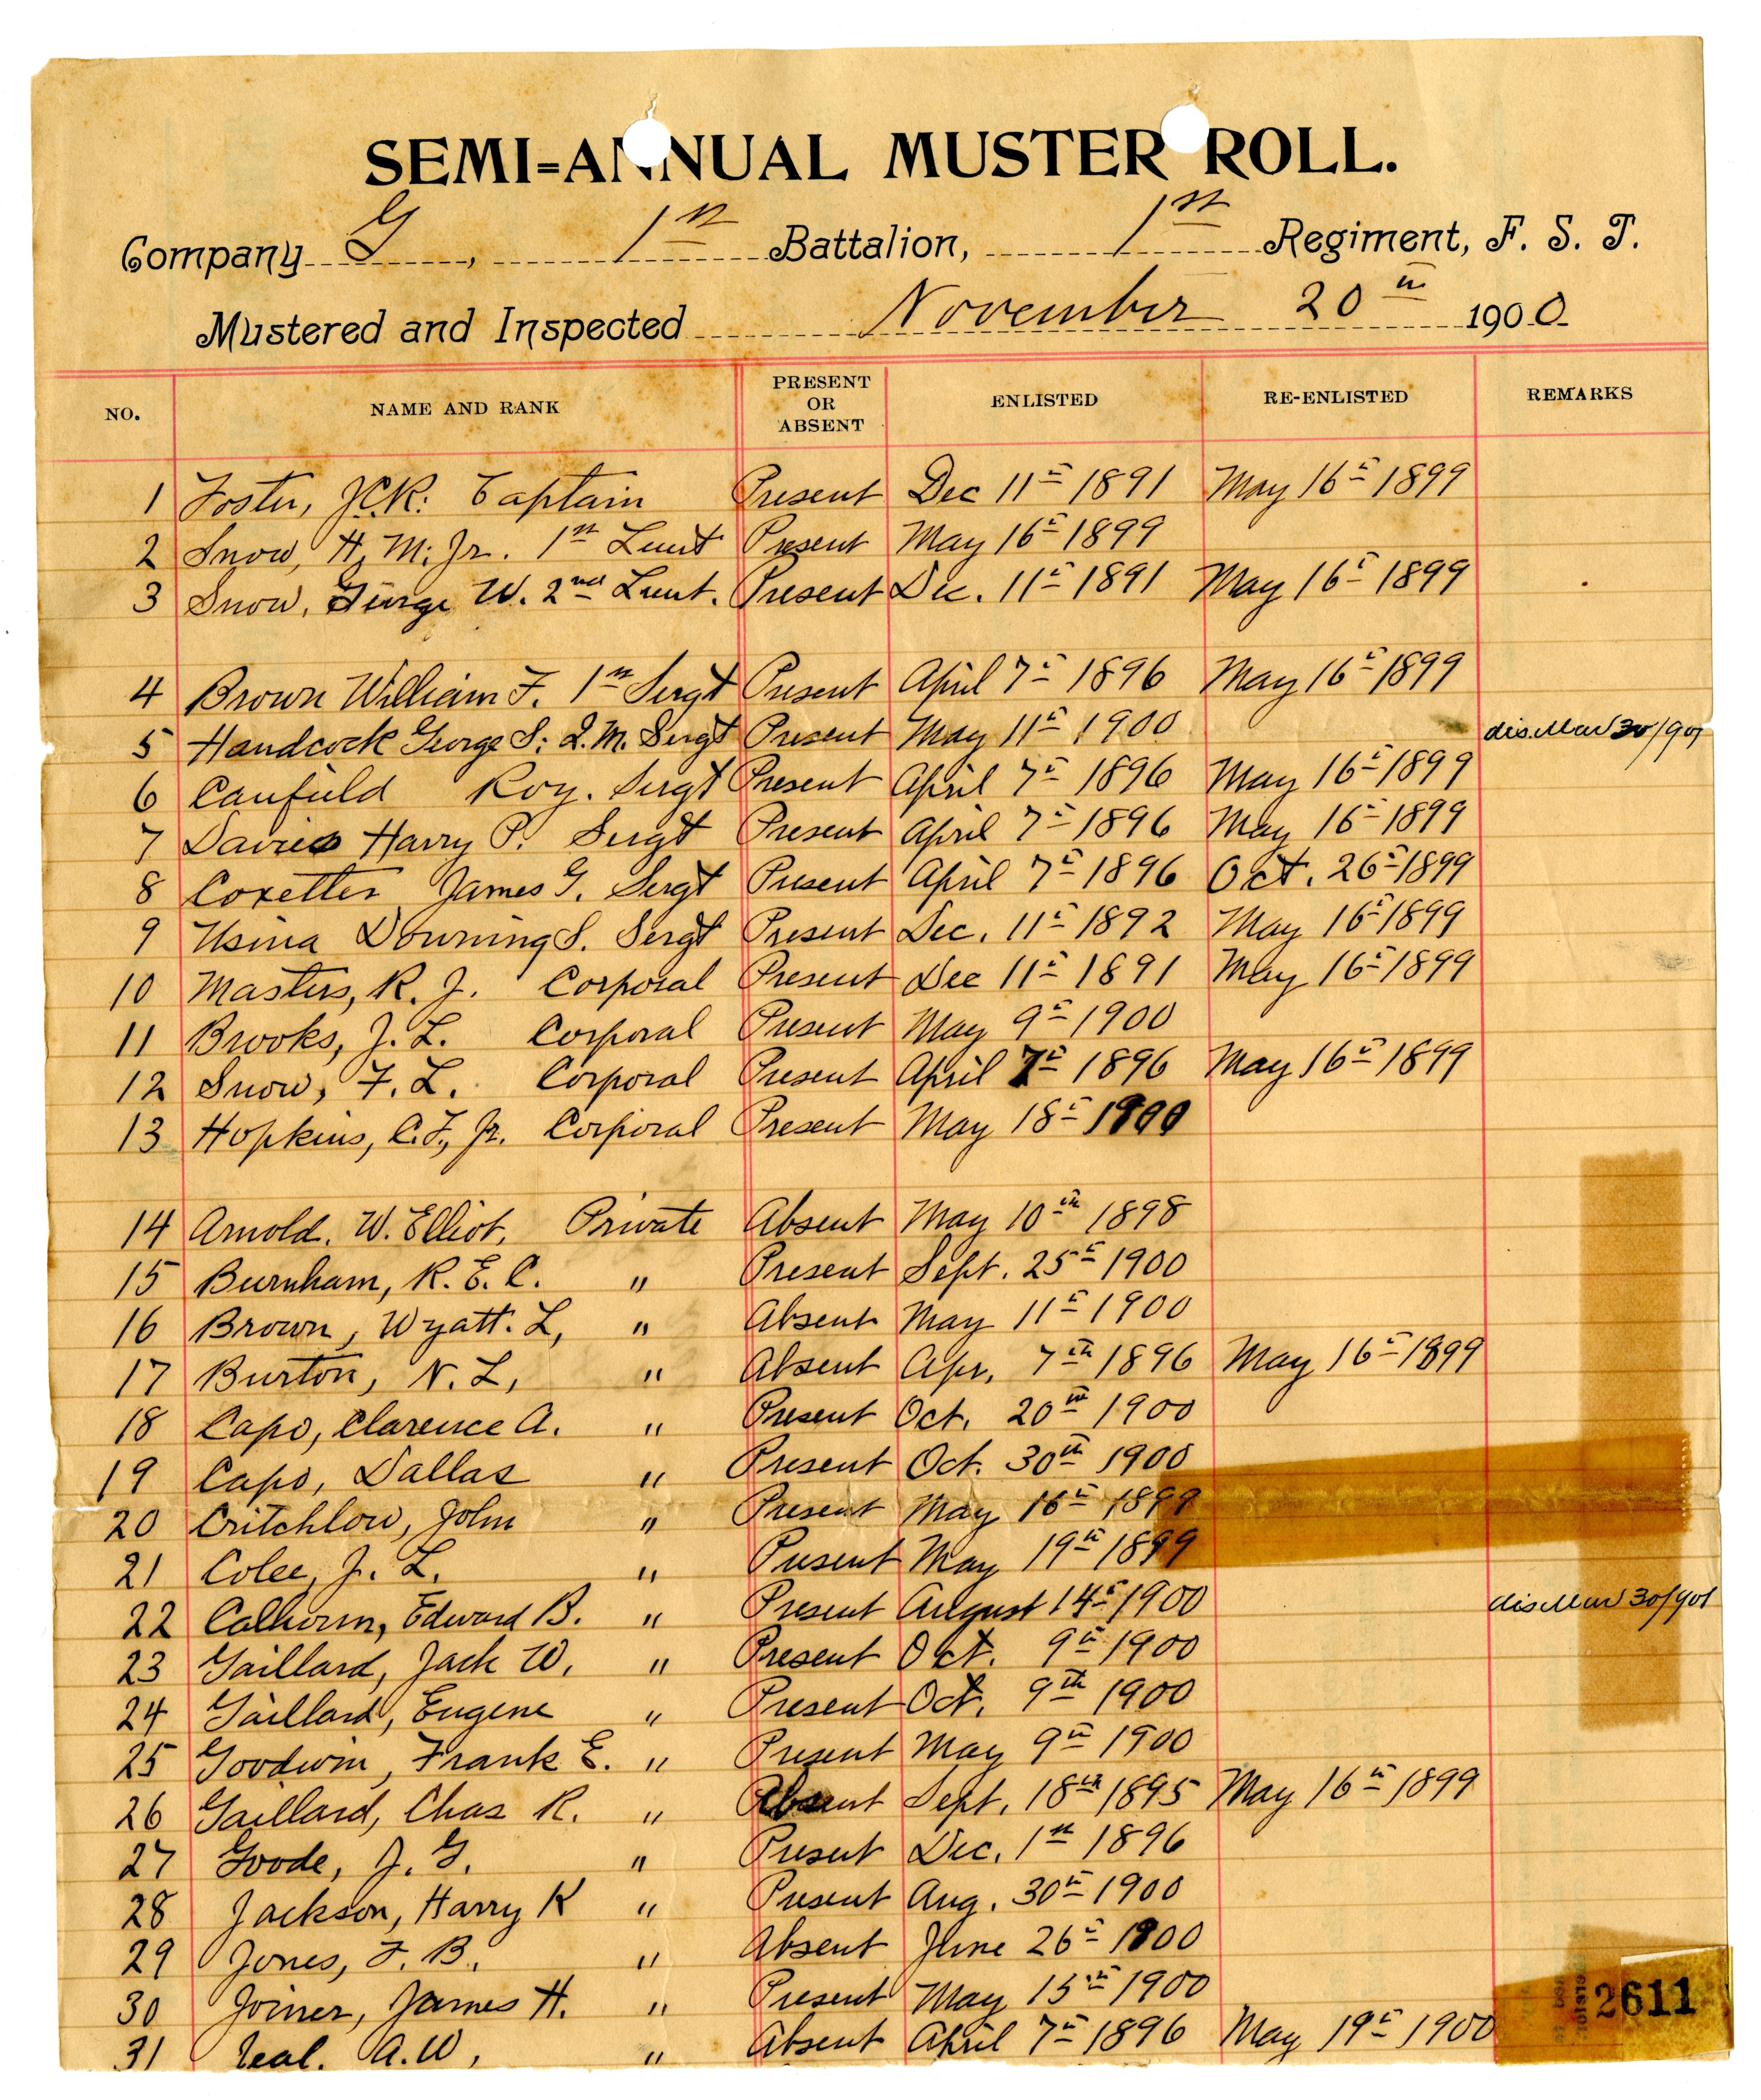 SEMI=ANNUAL MUSTER ROLL.
Company G, 1st Battalion, 1st Regiment, F. S. T.
Mustered and Inspected November 20th 1900
NO. NAME AND RANK PRESENT OR ABSENT ENLISTED RE-ENLISTED REMARKS
1 Foster, J.C.R. Captain Present Dec 11th 1891 May 16th 1899
2 Snow, H. M. Jr. 1st Lieut Present May 16th 1899
3 Snow, George W. 2nd Lieut. Present Dec. 11th 1891 May 16th 1899
4 Brown William F. 1st Sergt Present April 7th 1896 May 16th 1899
5 Handcock George S. Q. M. Sergt Present May 11th 1900 dis. Mar 30/901
6 Canfield Roy. Sergt Present April 7th 1896 May 16th 1899
7 Davies Harry P. Sergt Present April 7th 1896 May 16th 1899
8 Coxetter James G. Sergt Present April 7th 1896 Oct. 26th 1899
9 Usina Downing S. Sergt Present Dec. 11th 1892 May 16th 1899
10 Masters, R. J. Corporal Present Dec 11th 1891 May 16th 1899
11 Brooks, J. L. Corporal Present May 9th 1900
12 Snow, F. L. Corporal Present April 7th 1896 May 16th 1899
13 Hopkins, C. F., Jr. Corporal Present May 18th 1900
14 Arnold. W. Elliot. Private Absent May 10th 1898
15 Burnham, R. E. C. " Present Sept. 25th 1900
16 Brown, Wyatt. L, " Absent May 11th 1900
17 Burton, N. L, " Absent Apr. 7th 1896 May 16th 1899
18 Capo, Clarence A. " Present Oct. 20th 1900
19 Capo, Dallas " Present Oct. 30th 1900
20 Critchlow, John " Present May 16th 1899
21 Colee, J. L. " Present May 19th 1899
22 Calhoun, Edward B. " Present August 14th 1900 dis Mar 30/901
23 Gaillard, Jack W. " Present Oct. 9th 1900
24 Gaillard, Eugene " Present Oct. 9th 1900
25 Goodwin, Frank E. " Present May 9th 1900
26 Gaillard, Chas R. " Absent Sept. 18th 1895 May 16th 1899
27 Goode, J. G. " Present Dec. 1st 1896
28 Jackson, Harry K " Present Aug. 30th 1900
29 Jones, F. B. " Absent June 26th 1900
30 Joiner, James H. " Present May 15th 1900
31 A. W, " Absent April 7th 1896 May 19th 1900
2611